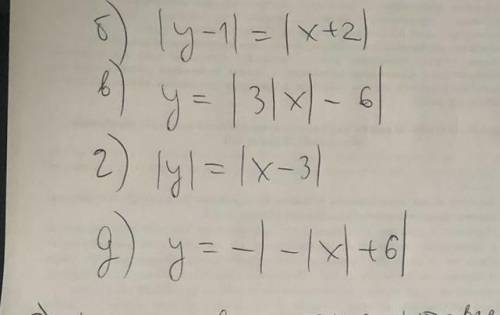 б) |y-1| = |x+2|
в) y = |3|x| - 6|
г) |y| = |x-3|
д) y = -|-|x|+6|